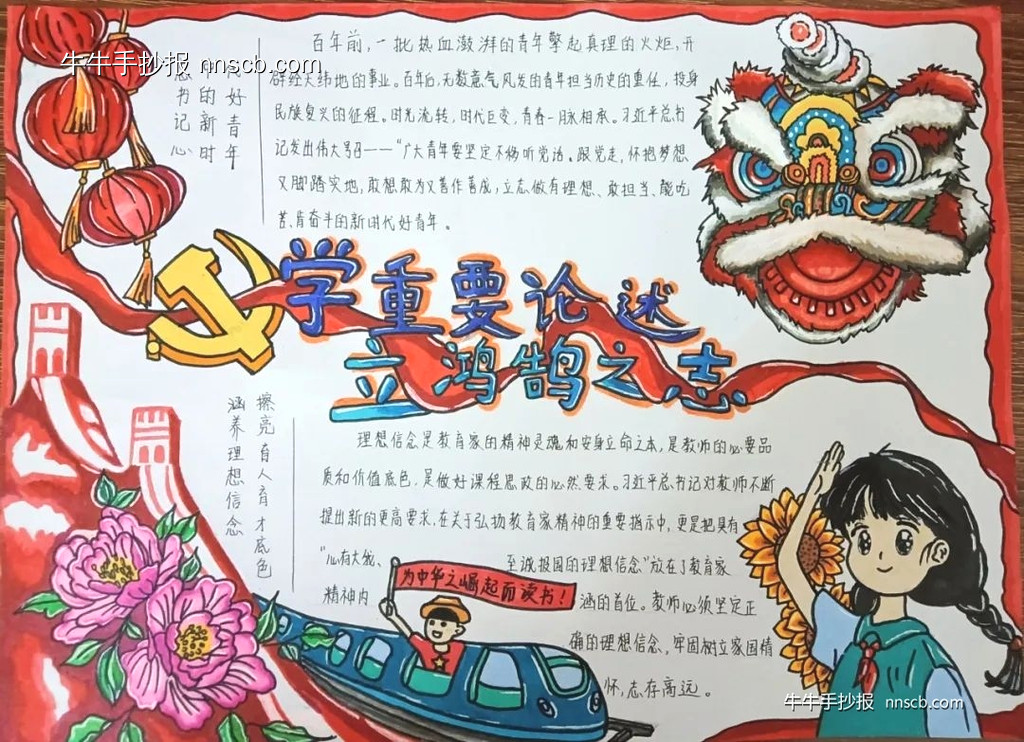 牛牛手抄报 nnscb.com
百年前,一批热血澎湃的青年擎起真理的火炬,开
辟经天纬地的事业。百年后,无数意气风发的青年担当历史的重任,投身
民族复兴的征程。时光流转,时代巨变,青春一脉相承。习近平总书
记发出伟大号召——“广大青年要坚定不移听党话、跟党走,怀抱梦想
又脚踏实地,敢想敢为又善作善成,立志做有理想、敢担当、能吃
苦、肯奋斗的新时代好青年。
书记心
的新时
好青年
学重要论述
立鸿鹄之志
擦亮自人育才底色
涵养理想信念
理想信念是教育家的精神灵魂和安身立命之本,是教师的必要品
质和价值底色,是做好课程思政的必然要求。习近平总书记对教师不断
提出新的更高要求,在关于弘扬教育家精神的重要指示中,更是把具有
“心有大我、至诚报国的理想信念”放在了教育家
精神内涵的首位。教师必须坚定正
确的理想信念,牢固树立家国情
怀,志存高远。
为中华之崛起而读书!
牛牛手抄报 nnscb.com